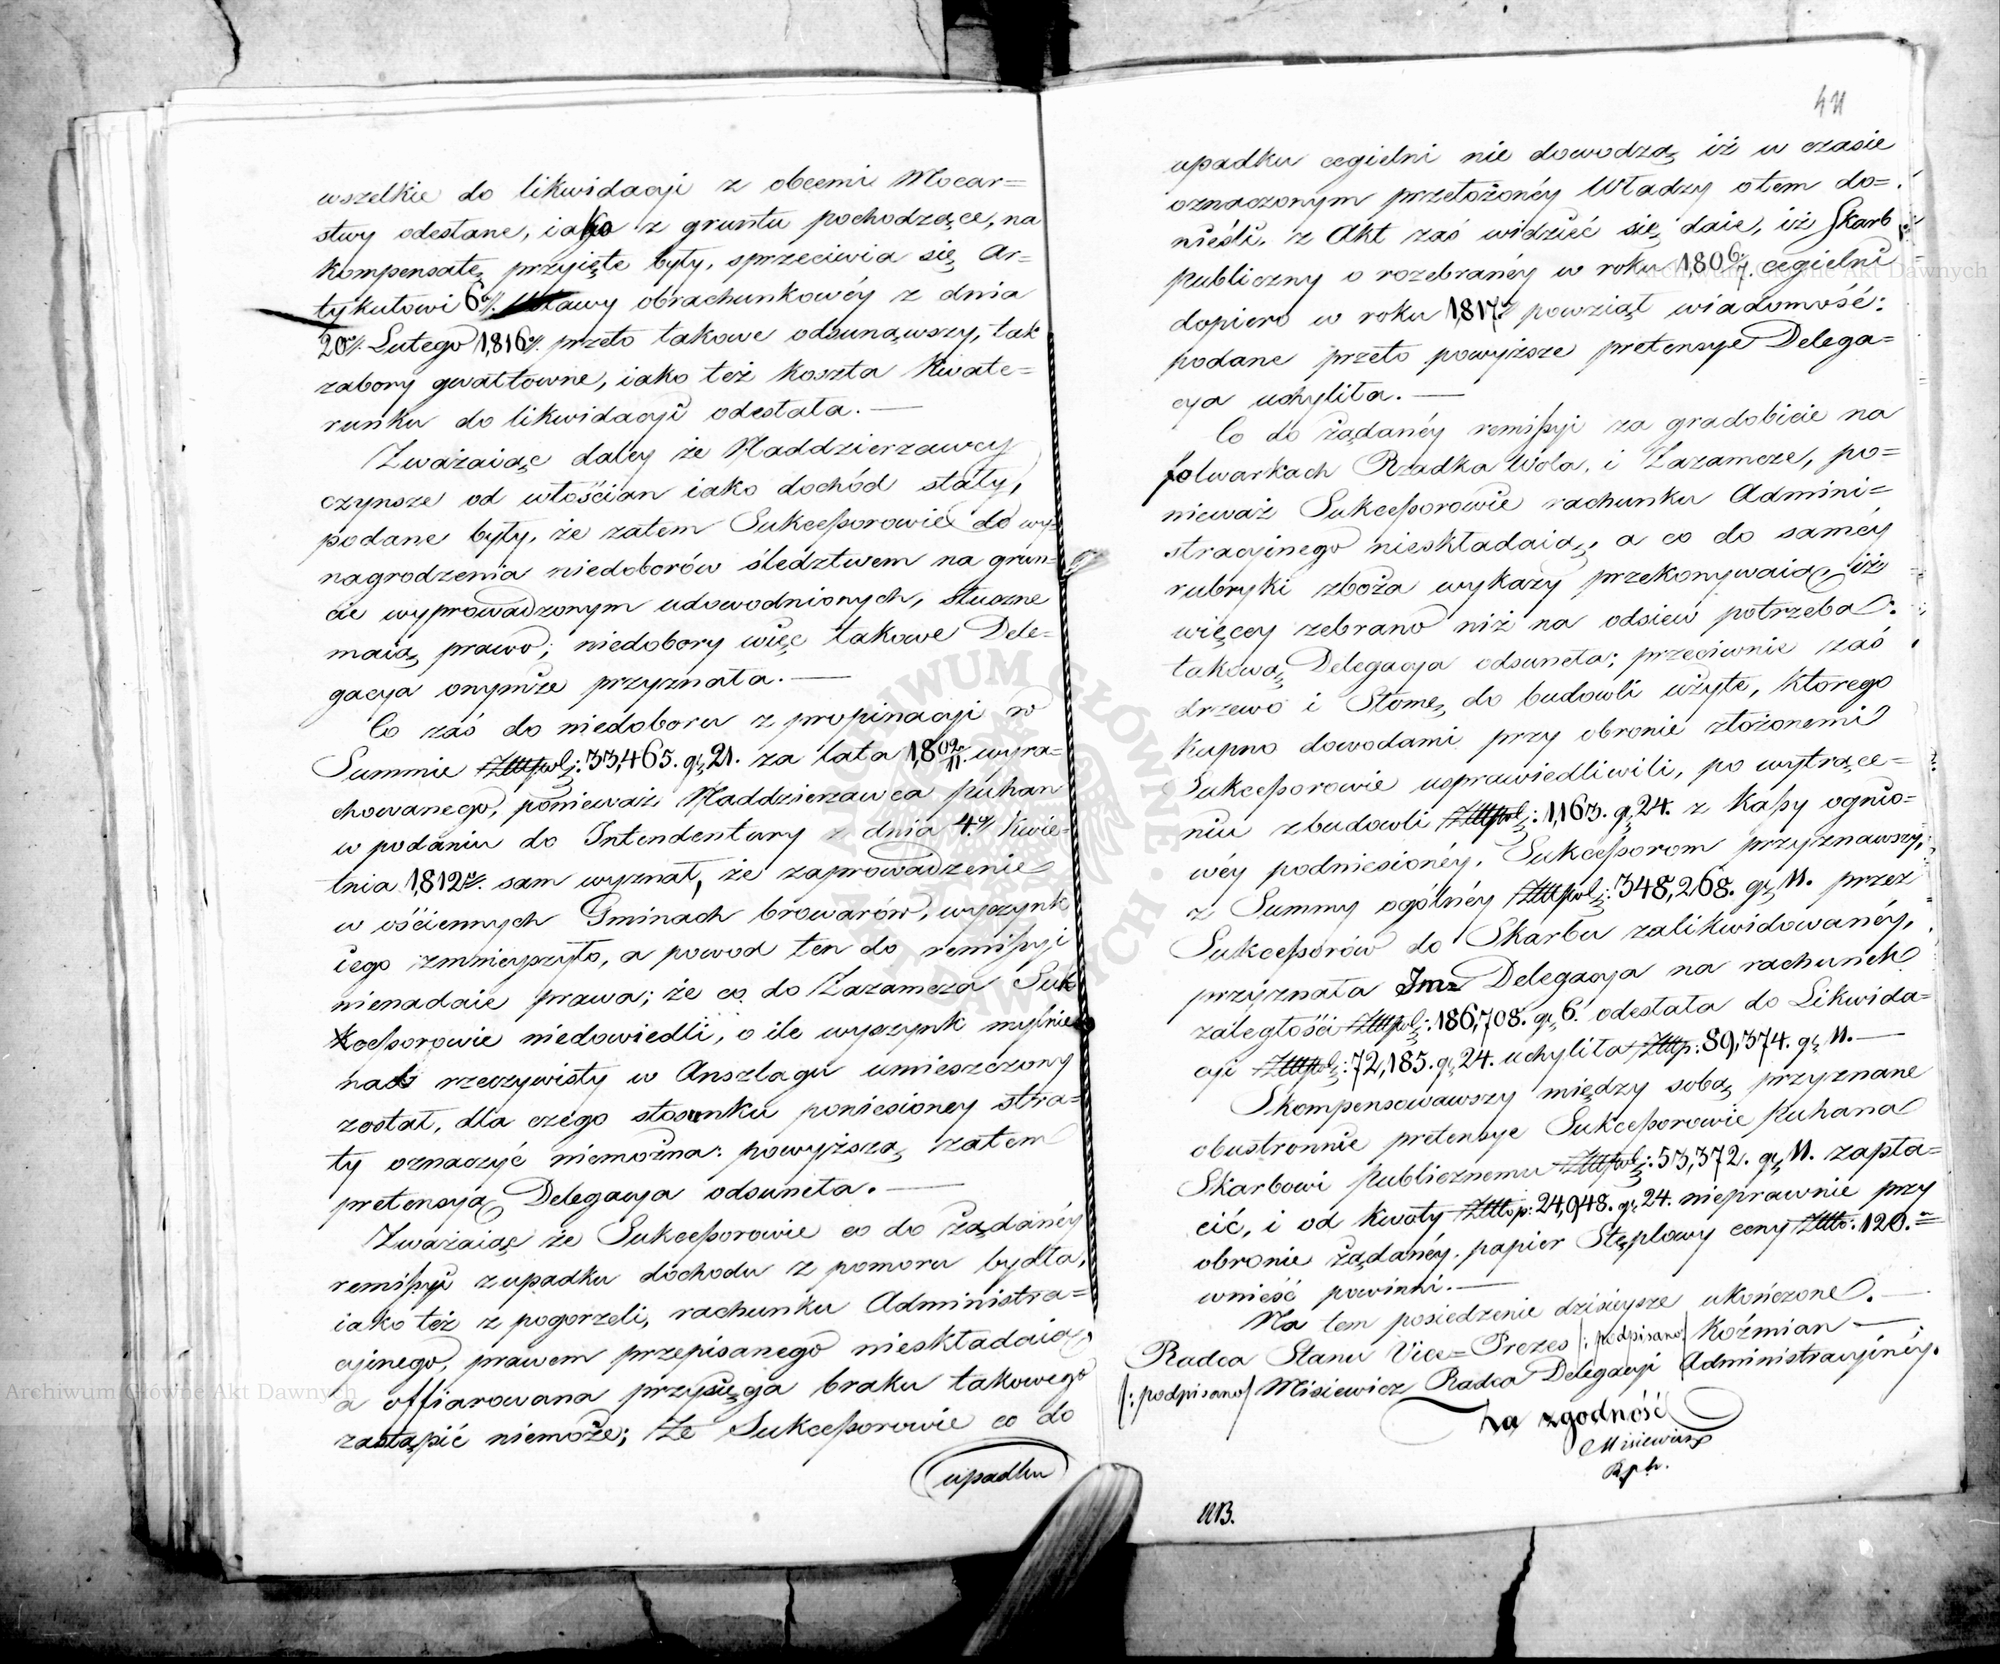 wszelkie do likwidacyi z obcemi Mocar=
stwy odesłane, iako z gruntu pochodzące, na
kompensatę przyięte były, sprzeciwia się Ar=
tykułowi 6º/. Ustawy obrachunkowéy z dnia
20º/. Lutego 1,816º/. przeto takowe odsunąwszy, tak
zabory gwałtowne, iako też koszta kwate=
runku do likwidacyi odesłała. —
Zważaiąc daley że Naddzierzawcy
czynsze od włościan iako dochód stały,
podane były, że zatem Sukcessorowie do wy=
nagrodzenia niedoborów śledztwem na grun=
cie wyprowadzonym udowodnionych, słuszne
maią prawo; niedobory więc takowe Dele=
gacya onymże przyznała. —
Co zaś do niedoboru z propinacyi w
Summie Złłpol: 33,465. gr. 21. za lata 1,809/11. wyra=
chowanego, ponieważ Naddzierzawca Puhan
w podaniu do Intendentury z dnia 4º/. Kwie=
tnia 1,812º/. sam wyznał, że zaprowadzenie
w ościennych Gminach browarów, wyszynk
iego zmnieyszyło, a powod ten do remissyi
nienadaie prawa; że co do Zazamcza Suk
kcessorowie niedowiedli, o ile wyszynk mylnie
nad rzeczywisty w Anszlagu umieszczony
został, dla czego stosunku poniesioney stra=
ty oznaczyć niemożna: powyższą zatem
pretensyą Delegacya odsuneła. —
Zważaiąc że Sukcessorowie co do żądanéy
remissyi z upadku dochodu z pomoru bydła,
iako też z pogorzeli, rachunku Administra=
cyinego, prawem przepisanego nieskładaią,
a offiarowana przysięga braku takowego
zastąpić niemoże; że Sukcessorowie co do
upadku
41
upadku cegielni nie dowodzą, iż w czasie
oznaczonym przełożonéy Władzy otem do=
nieśli, z Akt zaś widzieć się daie, iż Skarb
publiczny o rozebranéy w roku 1,806/7. cegielni
dopiero w roku 1,817º/. powziął wiadomość:
podane przeto powyższe pretensye Delega=
cya uchyliła. —
Co do żądanéy remissyi za gradobicie na
folwarkach Rzadka Wola, i Zazamcze, po=
nieważ Sukcessorowie rachunku Admini=
stracyinego nieskładaią, a co do saméy
rubryki zboża wykazy przekonywaią, iż
więcey zebrano niż na odsiew potrzeba:
takową Delegacya odsuneła; przeciwnie zaś
drzewo i Słomę do budowli użyte, którego
kupno dowodami przy obronie złożonemi
Sukcessorowie usprawiedliwili, po wytrące=
niu z budowli Złłpol: 1,163. gr. 24. z Kassy ognio=
wéy podniesionéy, Sukcessorom przyznawszy,
z Summy ogólnéy Złłpol: 348,268. gr. 11. przez
Sukcessorów do Skarbu zalikwidowanéy,
przyznała Delegacya na rachunek
zaległości Złłpol: 186,708. gr. 6. odesłała do Likwida=
cyi Złłpol: 72,185. gr. 24. uchyliła Złłp: 89,374. gr. 11. —
Skompensowawszy między sobą przyznane
obustronnie pretensye Sukcessorowie Puhana
Skarbowi Publicznemu Złłpol: 53,372. gr. 11. zapła=
cić, i od kwoty Złłp: 24,948. gr. 24. nieprawnie przy
obronie żądanéy, papier Stęplowy ceny Złło: 120.=
wnieść powinni. —
Na tem posiedzenie dzisieysze ukończone. —
Radca Stanu Vice=Prezes /:podpisano/ Koźmian —
/:podpisano/ Misiewicz Radca Delegacyi Administracyinéy.
Za zgodność
Misiewicz
NB.
Archiwum Główne Akt Dawnych
Archiwum Główne Akt Dawnych
ARCHIWUM GŁÓWNE AKT DAWNYCH